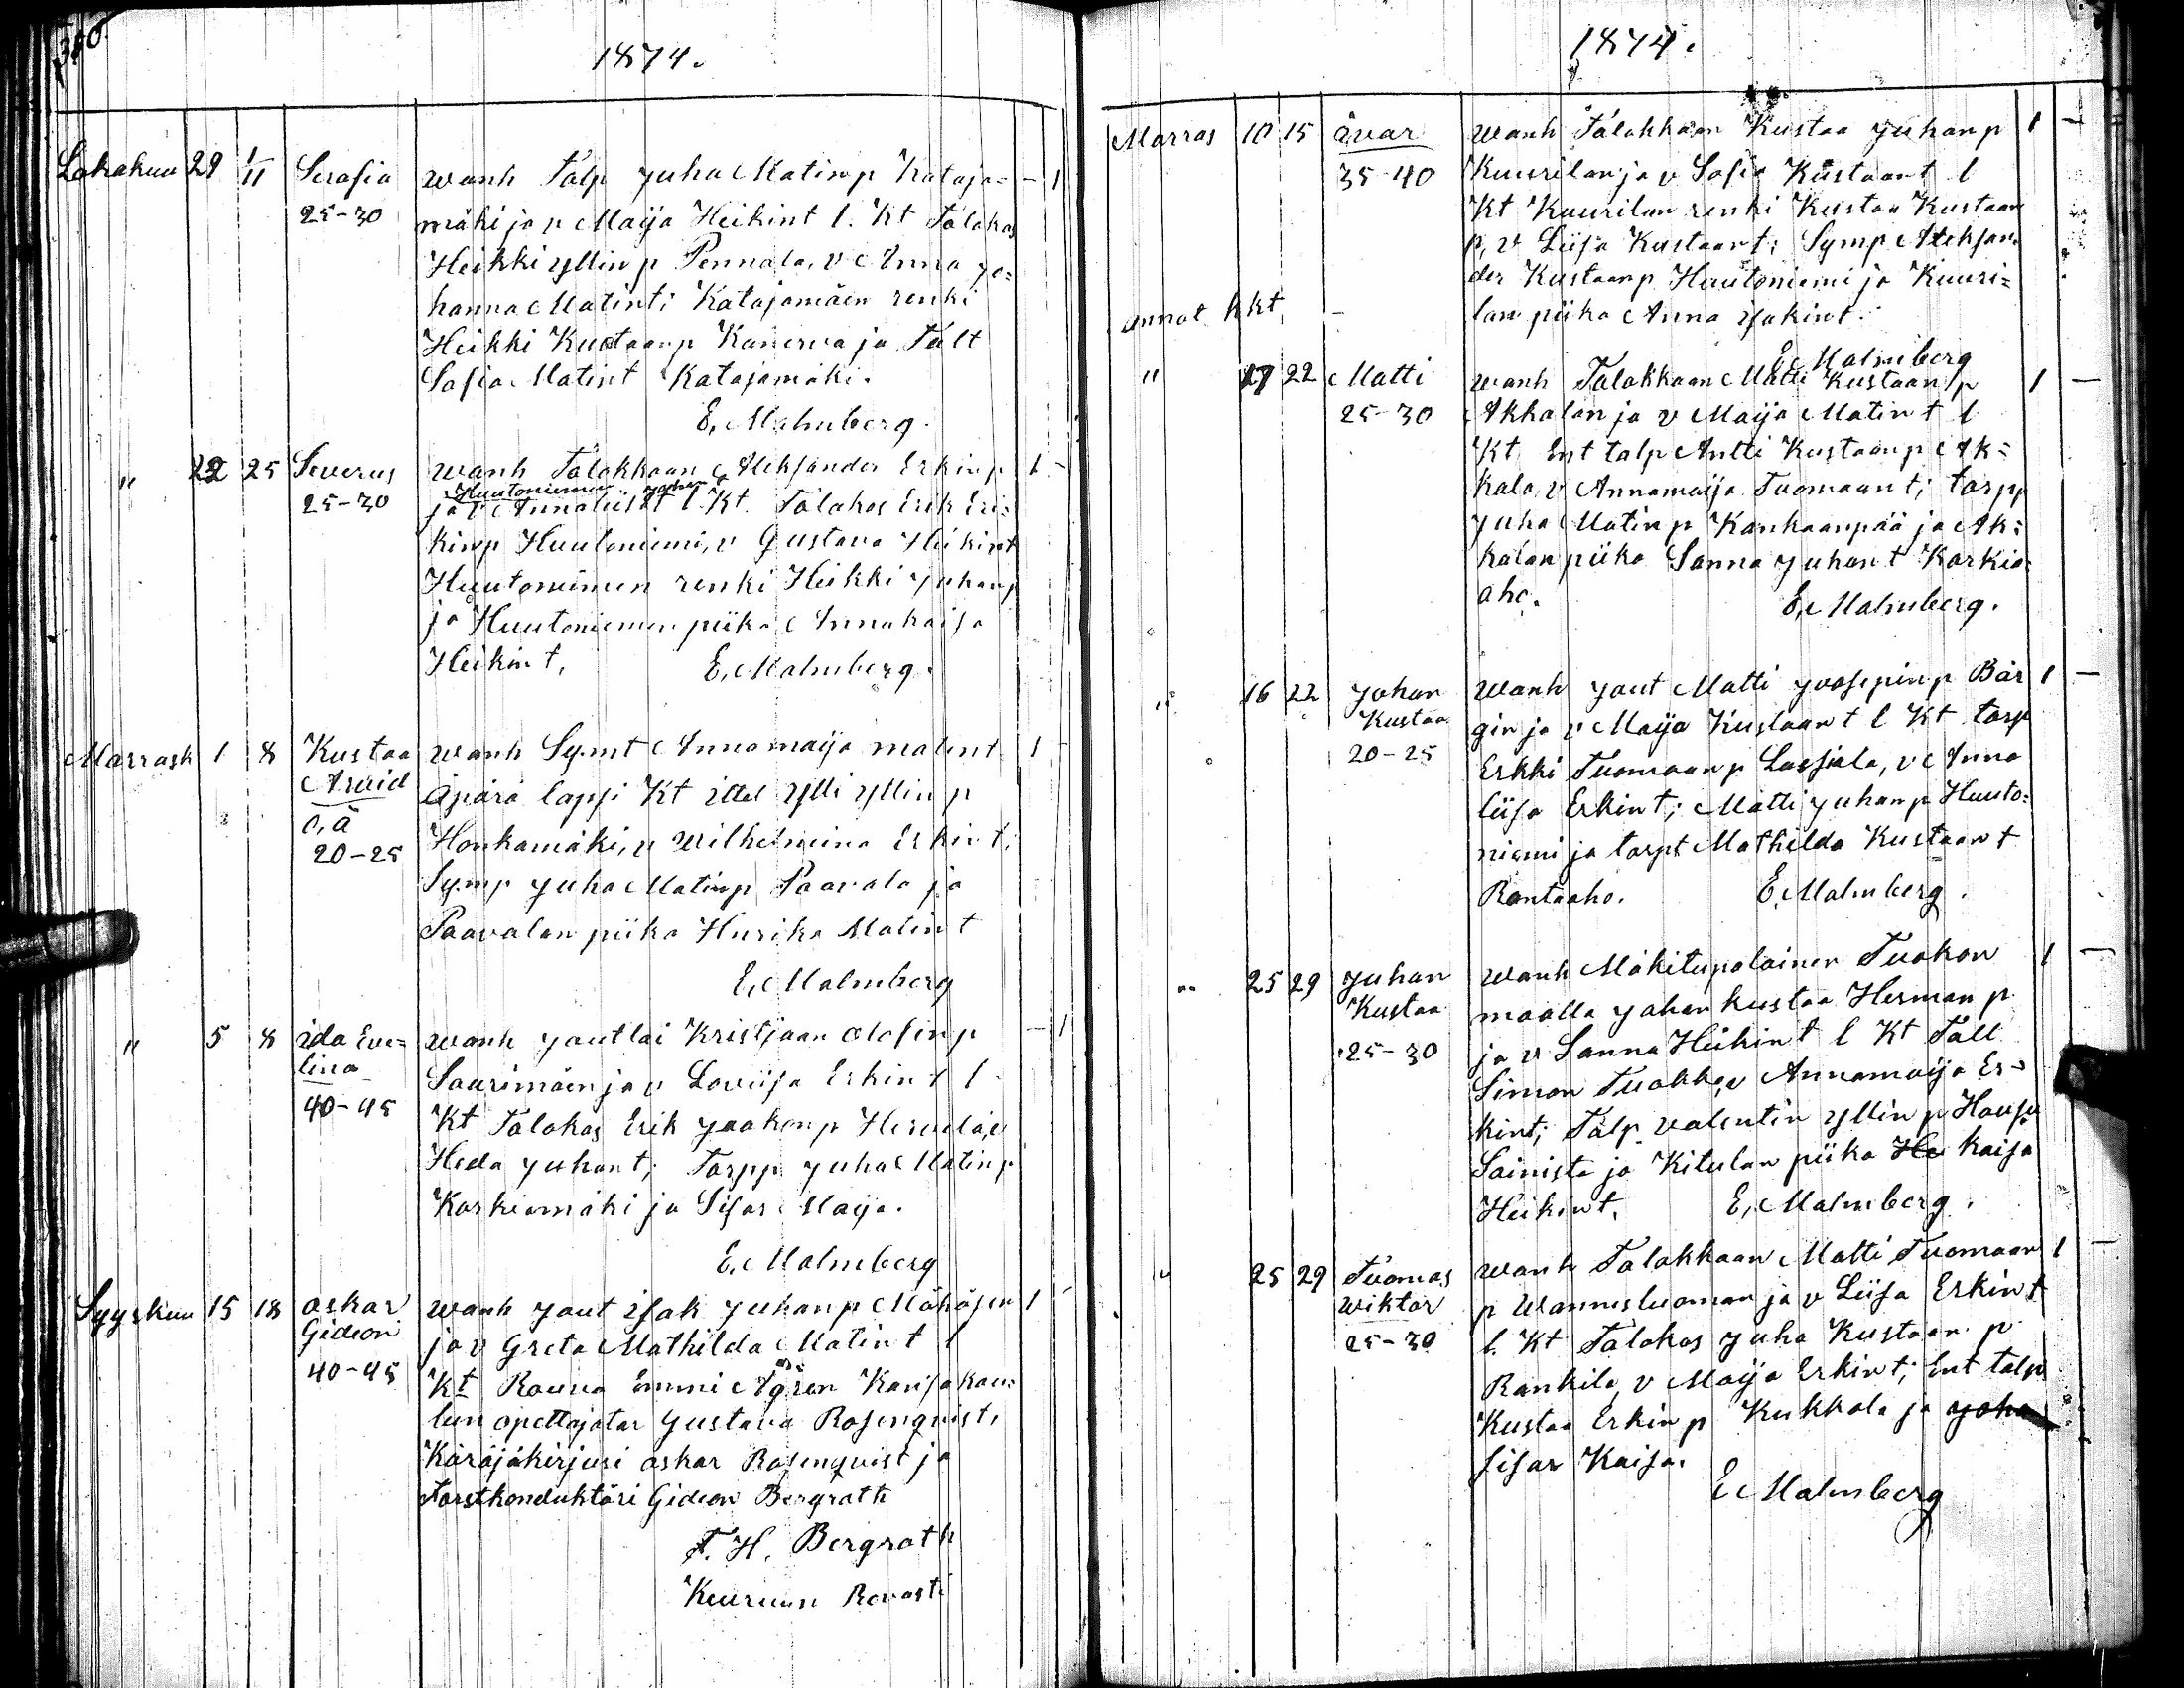 380
1874.
Lokakuu 29 1/11 Serafia wanh Talp Juha Matinp Kataja= - 1
25-30 mäki ja v Maija Heikint l. Kt Talokas
Heikki Yllinp Pennala, v Anna Jo=
hanna Matint; Katajamäen renki
Heikki Kustaanp Kanerva ja Talt
Sofia Matint Katajamäki.
E, Malmberg.
" 22 25 Severus wanh Talokkaan Aleksander Erkinp 1 -
Huutoniemen
25-30 ja v Annaliisa t l Kt. Talokas Erik Eri=
kinp Huutoniemi, v Gustava Heikint
Huutoniemen renki Heikki Juhanp
ja Huutoniemen piika Annakaisa
Heikint, E, Malmberg.
Marrask 1 8 Kustaa wanh Symt Annamaija matint 1 -
Arvid äpärä lapsi Kt ittel Ylli Yllinp
o, ä Honkamäki, v Wilhelmina Erkint;
20-25 Symp Juha Matinp Paavala ja
Paavalan piika Hurika Matint
E, Malmberg
" 5 8 ida Eve= wanh Joutlai Kristjaan Olofinp - 1
lina Saurimäen ja v Loviisa Erkint l
40-45 Kt Talokas Erik Jaakonp Hervela, v
Heda Juhant; Torpp Juha Matinp
Karkiamäki ja Sisar Maija.
E. Malmberg
Syyskuu 15 18 oskar wanh Jout isak Juhanp Mähäsen 1 -
Gideon ja v Greta Mathilda Matint l
40-45 Kt Rouva Emmi Ågren Kansakou=
lun opettajatar Gustava Rosenqvist,
Käräjäkirjuri oskar Rosenqvist ja
Forstkonduktöri Gideon Bergroth
F. H. Bergroth
Keuruun Rovasti
1874.
Marras 10 15 ivar wanh Talokkaan Kustaa Juhanp 1 -
35-40 Kuurilan ja v Sofia Kustaant l
Kt Kuurilan renki Kustaa Kustaan
p, v Liisa Kustaant; Symp Aleksan=
der Kustaanp Huutoniemi ja Kuuri=
annot kkt - lan piika Anna Jakint.
E Malmberg
" 17 22 Matti wanh Talokkaan Matti Kustaanp 1 -
25-30 Akkalan ja v Maija Matint l
Kt Ent talp Antti Kustaanp Ak=
kala, v Annamaija Tuomaant; torpp
Juha Matinp Kankaanpää ja Ak=
kalan piika Sanna Juhant Karkia=
aho. E, Malmberg.
" 16 22 Johan wanh Jout Matti Joosepinp Bär 1 -
Kustaa gin ja v Maija Kustaant l Kt torp
20-25 Erkki Tuomaanp Lassila, v Anna
liisa Erkint; Matti Juhanp Huuto=
niemi ja torpt Mathilda Kustaant
Rantaaho. E, Malmberg.
" 25 29 Juhan wanh Mäkitupalainen Tuokon 1 -
Kustaa maalla Johan kustaa Herman p
25-30 ja v Sanna Heikint l Kt Tall
Simon Tuokko, v Annamaija Er=
kint; Talp valentin Yllinp
Sainista ja Kitulan piika Kaisa
Heikint. E, Malmberg.
" 25 29 Tuomas wanh Talokkaan Matti Tuomaan 1 -
Wiktor p Wannesluoman ja v Liisa Erkint
25-30 l. Kt Talokas Juha Kustaan p
Rankila, v Maija Erkint; Ent talp
Kustaa Erkin p Kukkola ja
sisar Kaisa.
E Malmberg